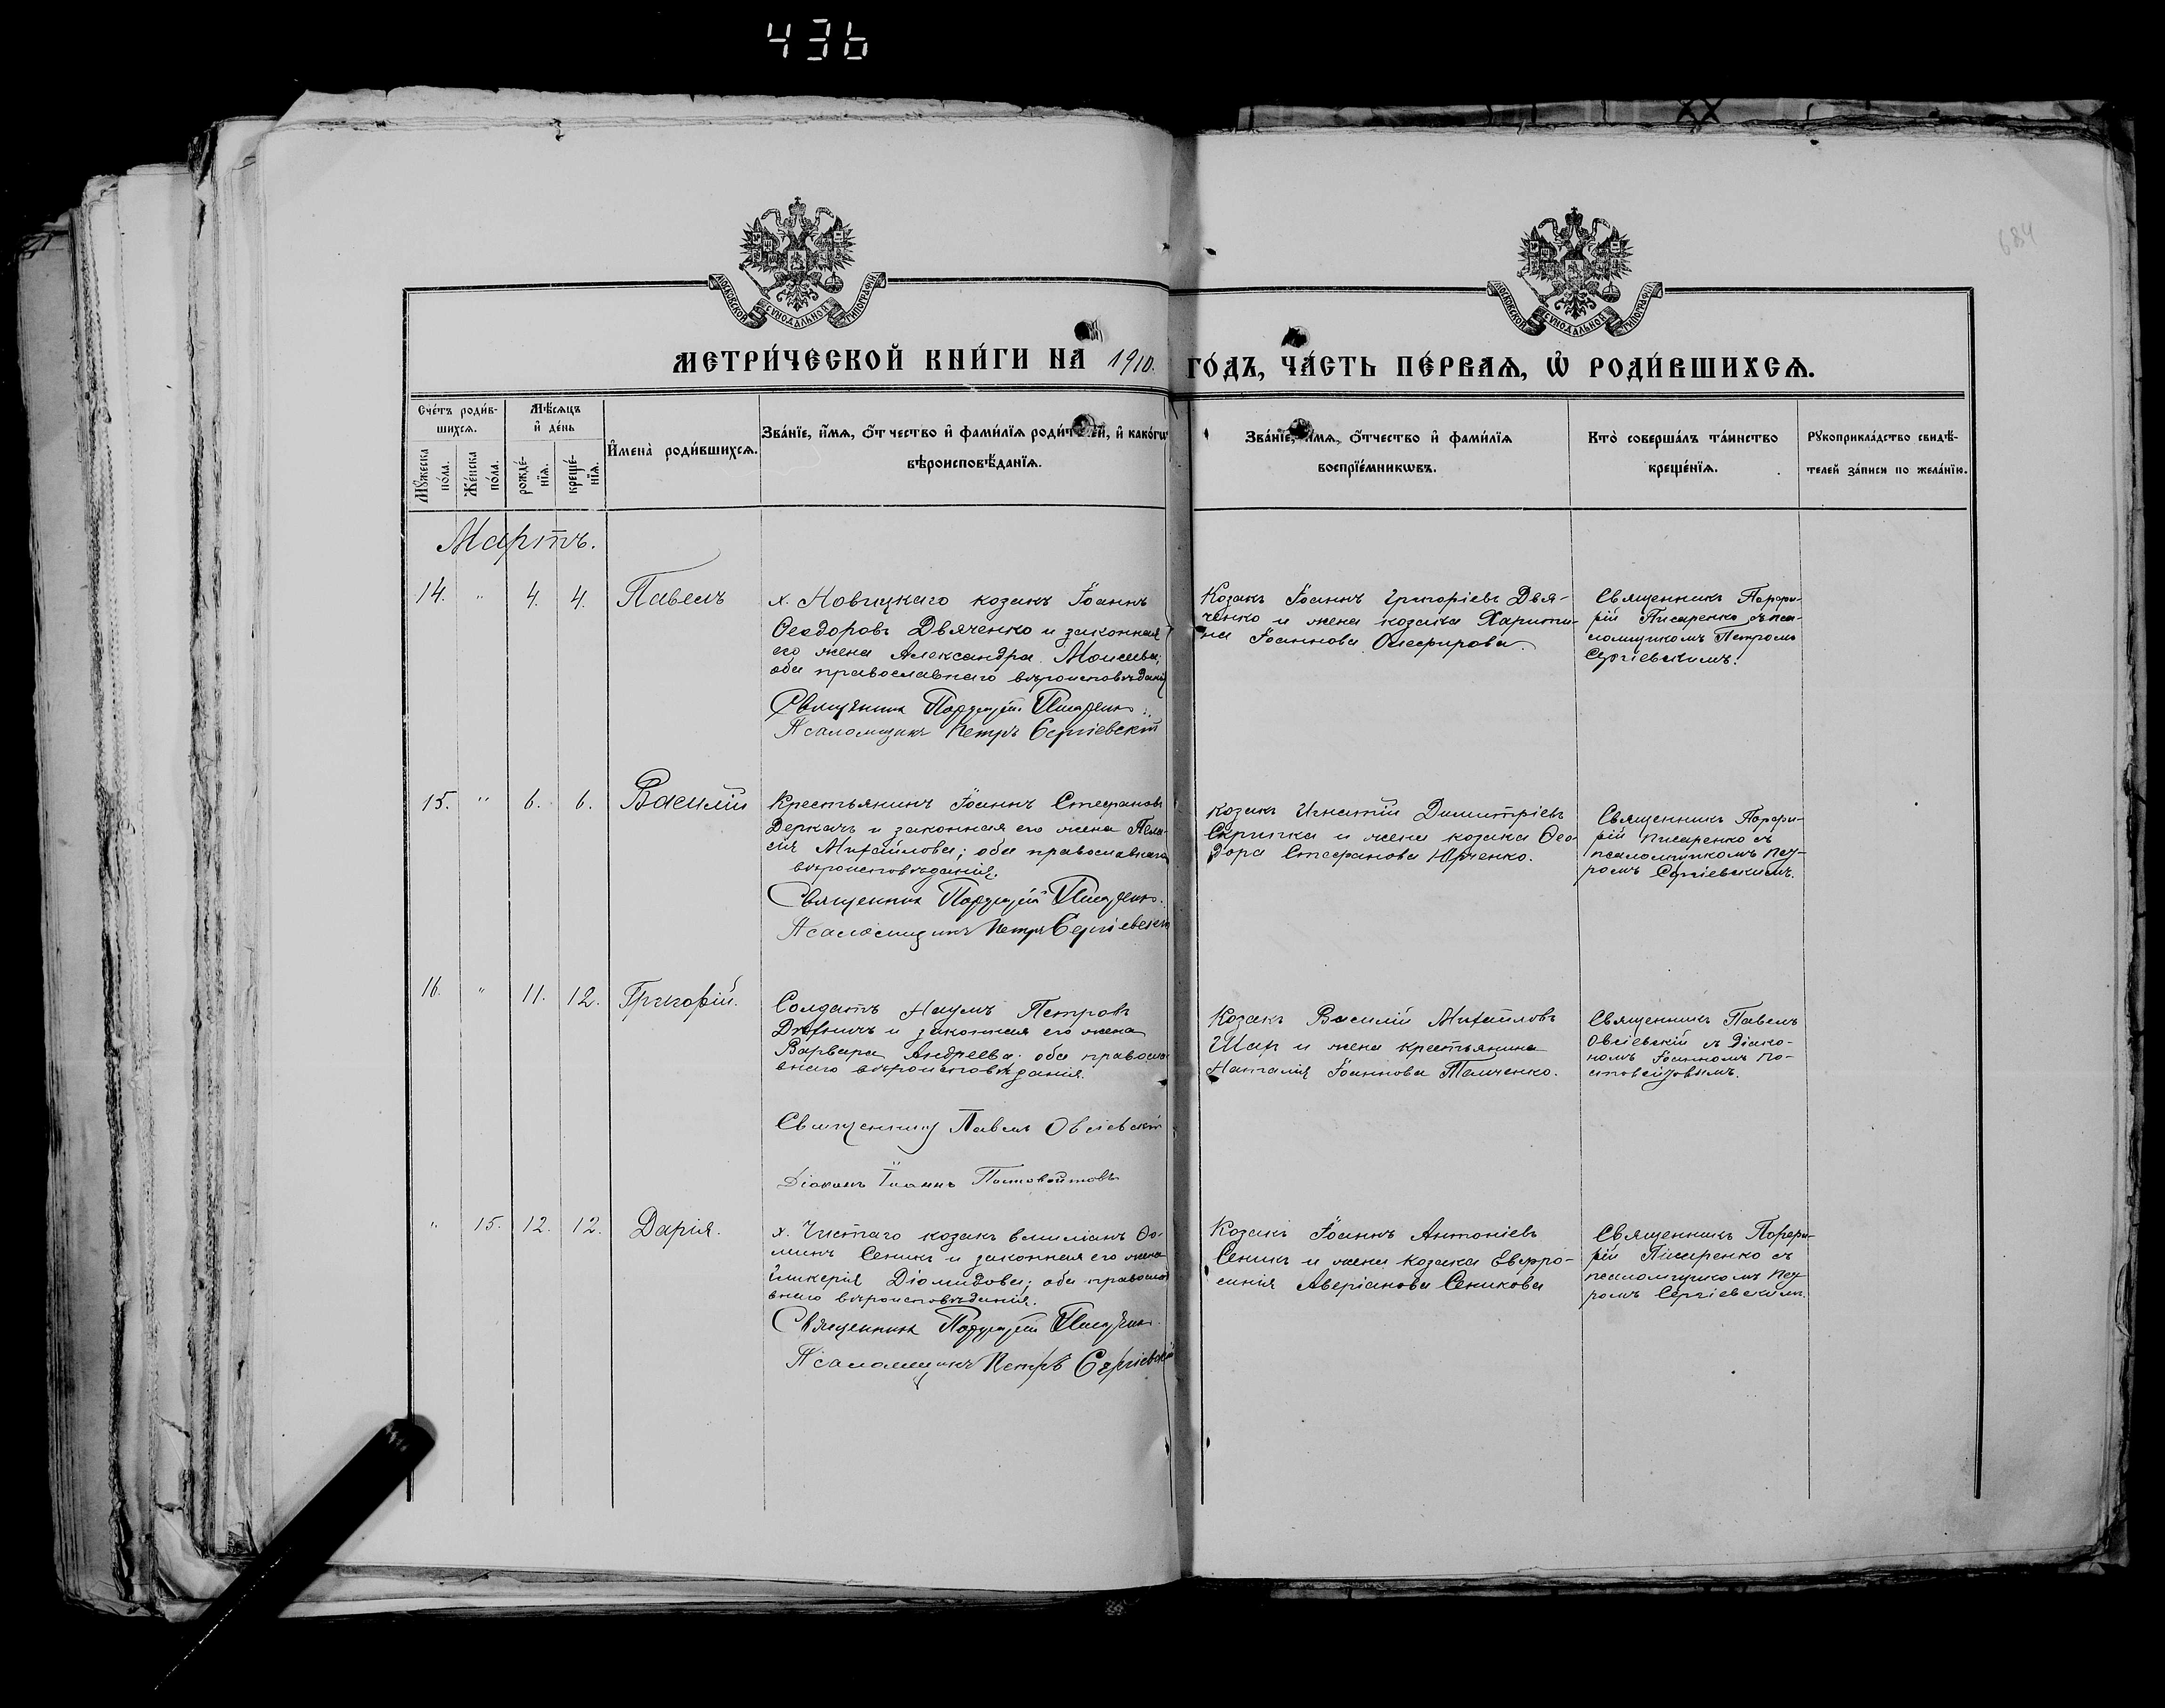 436
684
МОСКОВСКОЙ СѴНОДАЛЬНОЙ ТИПОГРАФІИ
МОСКОВСКОЙ СѴНОДАЛЬНОЙ ТИПОГРАФІИ
МЕТРИ́ЧЕСКОЙ КНИ́ГИ НА 1910. ГО́ДЪ, ЧА́СТЬ ПЕ́РВАѦ, Ѿ РОДИ́ВШИХСѦ.
Сче́тъ роди́в-
шихсѧ.
Мꙋ́жеска по́ла.
Же́нска по́ла.
Мѣ́сѧцъ
и҆ де́нь
рожде́-
нїѧ.
креще́-
нїѧ.
И҆мена̀ роди́вшихсѧ.
Зва́нїе, и҆́мѧ, ѻ҆́тчество и҆ фами́лїѧ роди́телей, и҆ како́гѡ
вѣроисповѣ́данїѧ.
Зва́нїе, и҆́мѧ, ѻ҆́тчество и҆ фами́лїѧ
воспрїе́мникѡвъ.
Кто̀ соверша́лъ та́инство
креще́нїѧ.
Рꙋкоприкла́дство свидѣ́-
телей за́писи по жела́нїю.
Мартъ.
14. " 4. 4. Павелъ
х. Новицкаго козакъ Іоаннъ
Ѳеодоровъ Двяченко и законная
его жена Александра Моисеева;
оба православнаго вѣроисповѣданія
Священник Порфирій Писаренко.
Псаломщикъ Петръ Сергіевскій
Козакъ Іоаннъ Григоріевъ Двя-
ченко и жена козака Харити-
на Іоаннова Олефирова.
Священникъ Порфи-
рій Писаренко съ пса-
ломщикомъ Петромъ
Сергіевскимъ.
15. " 6. 6. Василій
Крестьянинъ Іоаннъ Стефановъ
Деркачъ и законная его жена Пела-
гія Михайлова; оба православнаго
вѣроисповѣданія.
Священник Порфирій Писаренко.
Псаломщикъ Петръ Сергіевскій
Козакъ Игнатій Димитріевъ
Скрипка и жена козака Ѳео-
дора Стефанова Юрченко.
Священникъ Порфи-
рій Писаренко съ
псаломщикомъ Пет-
ромъ Сергіевскимъ.
16. " 11. 12. Григорій.
Солдатъ Наумъ Петровъ
и законная его жена
Варвара Андреева; оба правосла-
внаго вѣроисповѣданія.
Священникъ Павелъ Овсіевскій
Діаконъ Іоаннъ Постовойтовъ
Козакъ Василій Михайловъ
Шап и жена крестьянина
Наталія Іоаннова Панченко.
Священникъ Павелъ
Овсіевскій съ Діако-
номъ Іоанномъ По-
стовойтовымъ.
" 15. 12. 12. Дарія.
х. Чистаго козакъ Емиліанъ Ѳо-
минъ Сеникъ и законная его жена
Гликерія Діомидова; оба правосла-
внаго вѣроисповѣданія.
Священник Порфирій Писаренко.
Псаломщикъ Петръ Сергіевскій
Козакъ Іоаннъ Антоніевъ
Сеникъ и жена козака Евфро-
синія Аверіанова Сеникова
Священникъ Порфи-
рій Писаренко съ
псаломщикомъ Пет-
ромъ Сергіевскимъ.